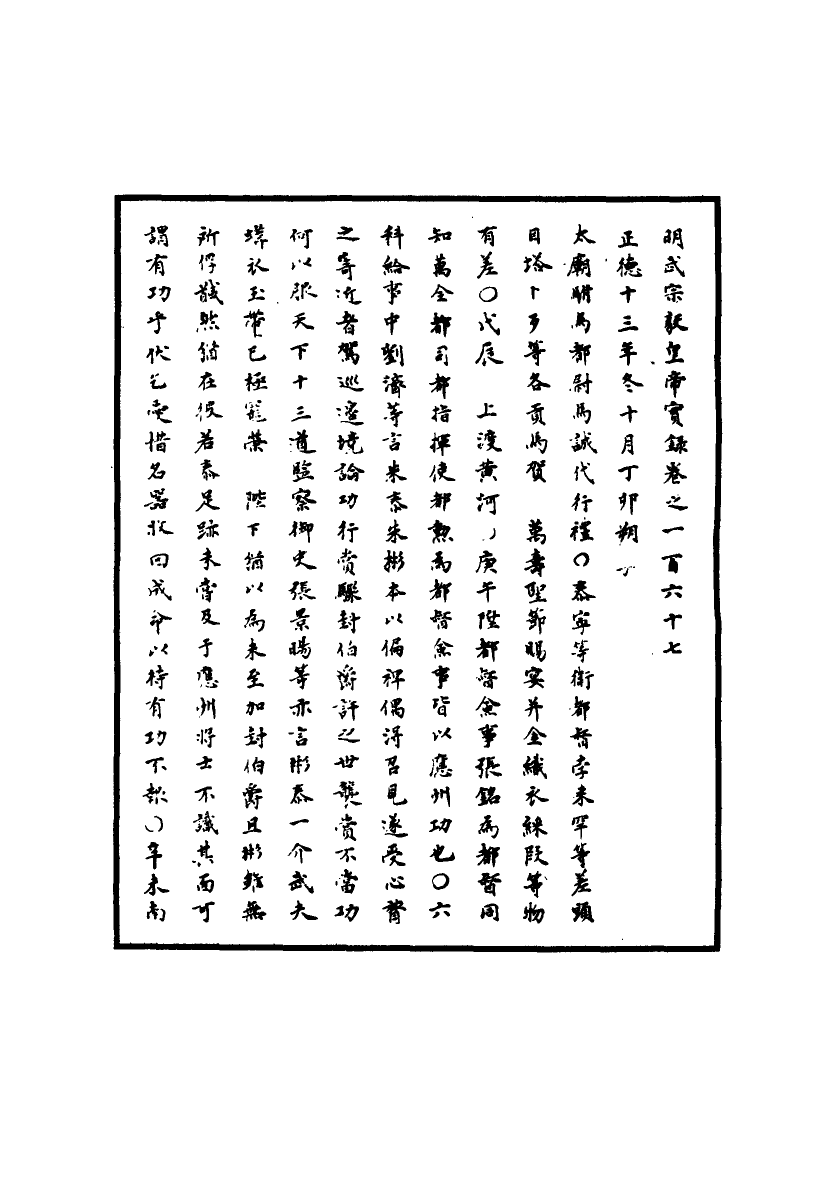 明武宗毅皇帝實錄卷之一百六十七
正德十三年冬十月丁卯朔
太廟駙馬都尉馬誠代行禮〇泰寧等衛都督孛来罕等差頭
目塔卜歹等各貢馬賀　萬壽聖節賜宴并金織衣綵叚等物
有差〇戊辰　上渡黄河〇庚午陞都督僉事張銘為都督同
知萬全都司都指揮使都勲為都督僉事皆以應州功也〇六
科給事中劉濟等言朱泰朱彬本以偏裨偶淂召見遂受心膂
之寄近者駕巡邉境論功行賞驟封伯爵許之世襲賞不當功
何以服天下十三道監察御史張景暘等亦言彬泰一介武夫
蟒衣玉帶已極寵榮　陛下猶以為未至加封伯爵且彬雖無
所俘馘然猶在彼若泰足跡未甞及于應州将士不識其面可
謂有功乎伏乞愛惜名器收回成命以待有功不報〇辛未南